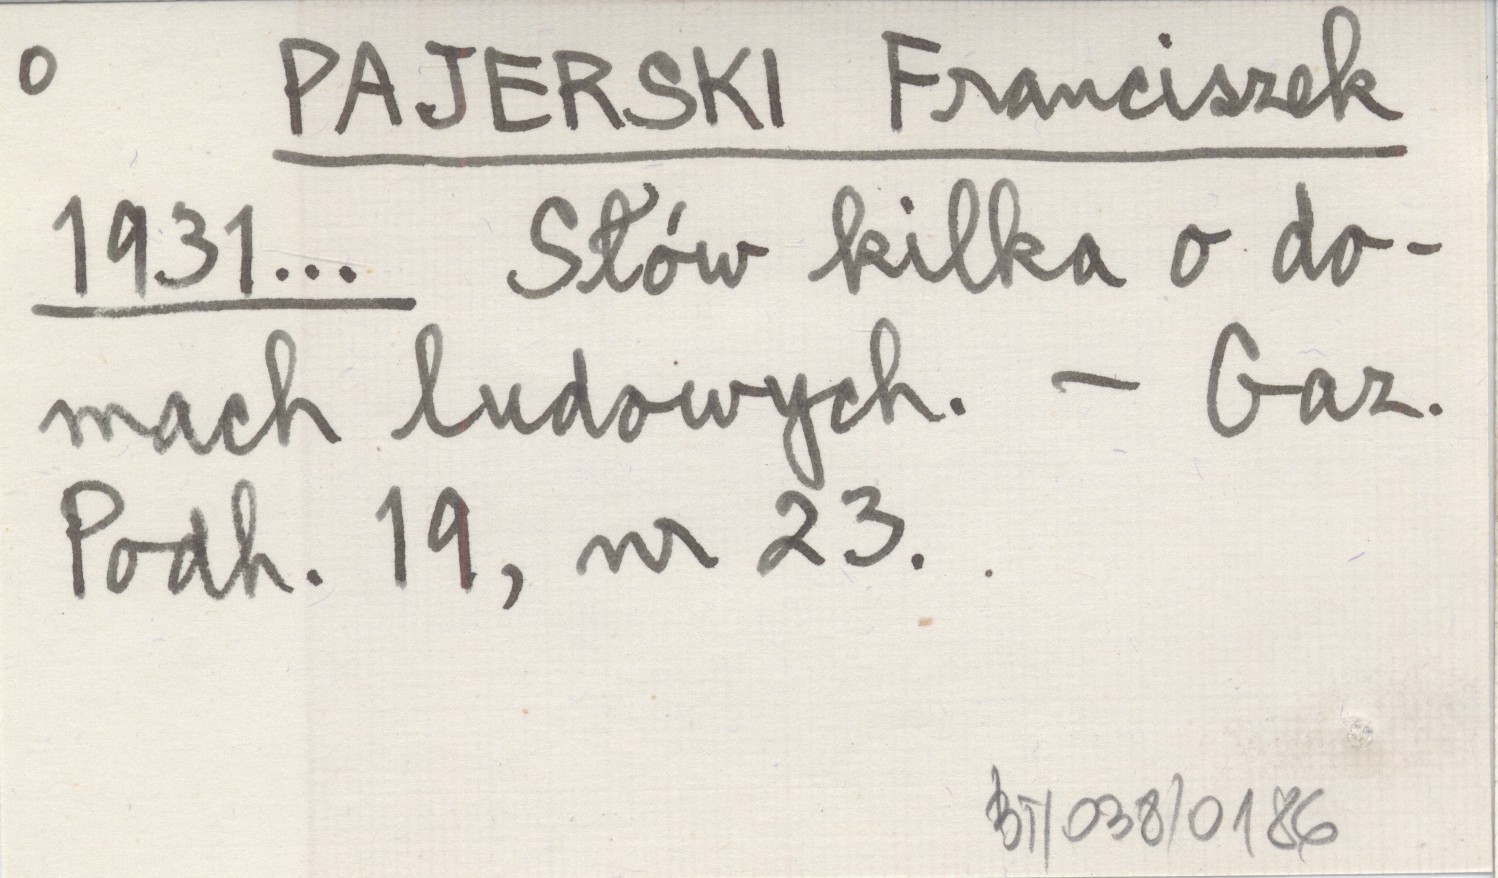 o PAJERSKI Franciszek
1931... Słów kilka o do-
mach ludowych. – Gaz.
Podh. 19, nr 23.
BT/038/0186